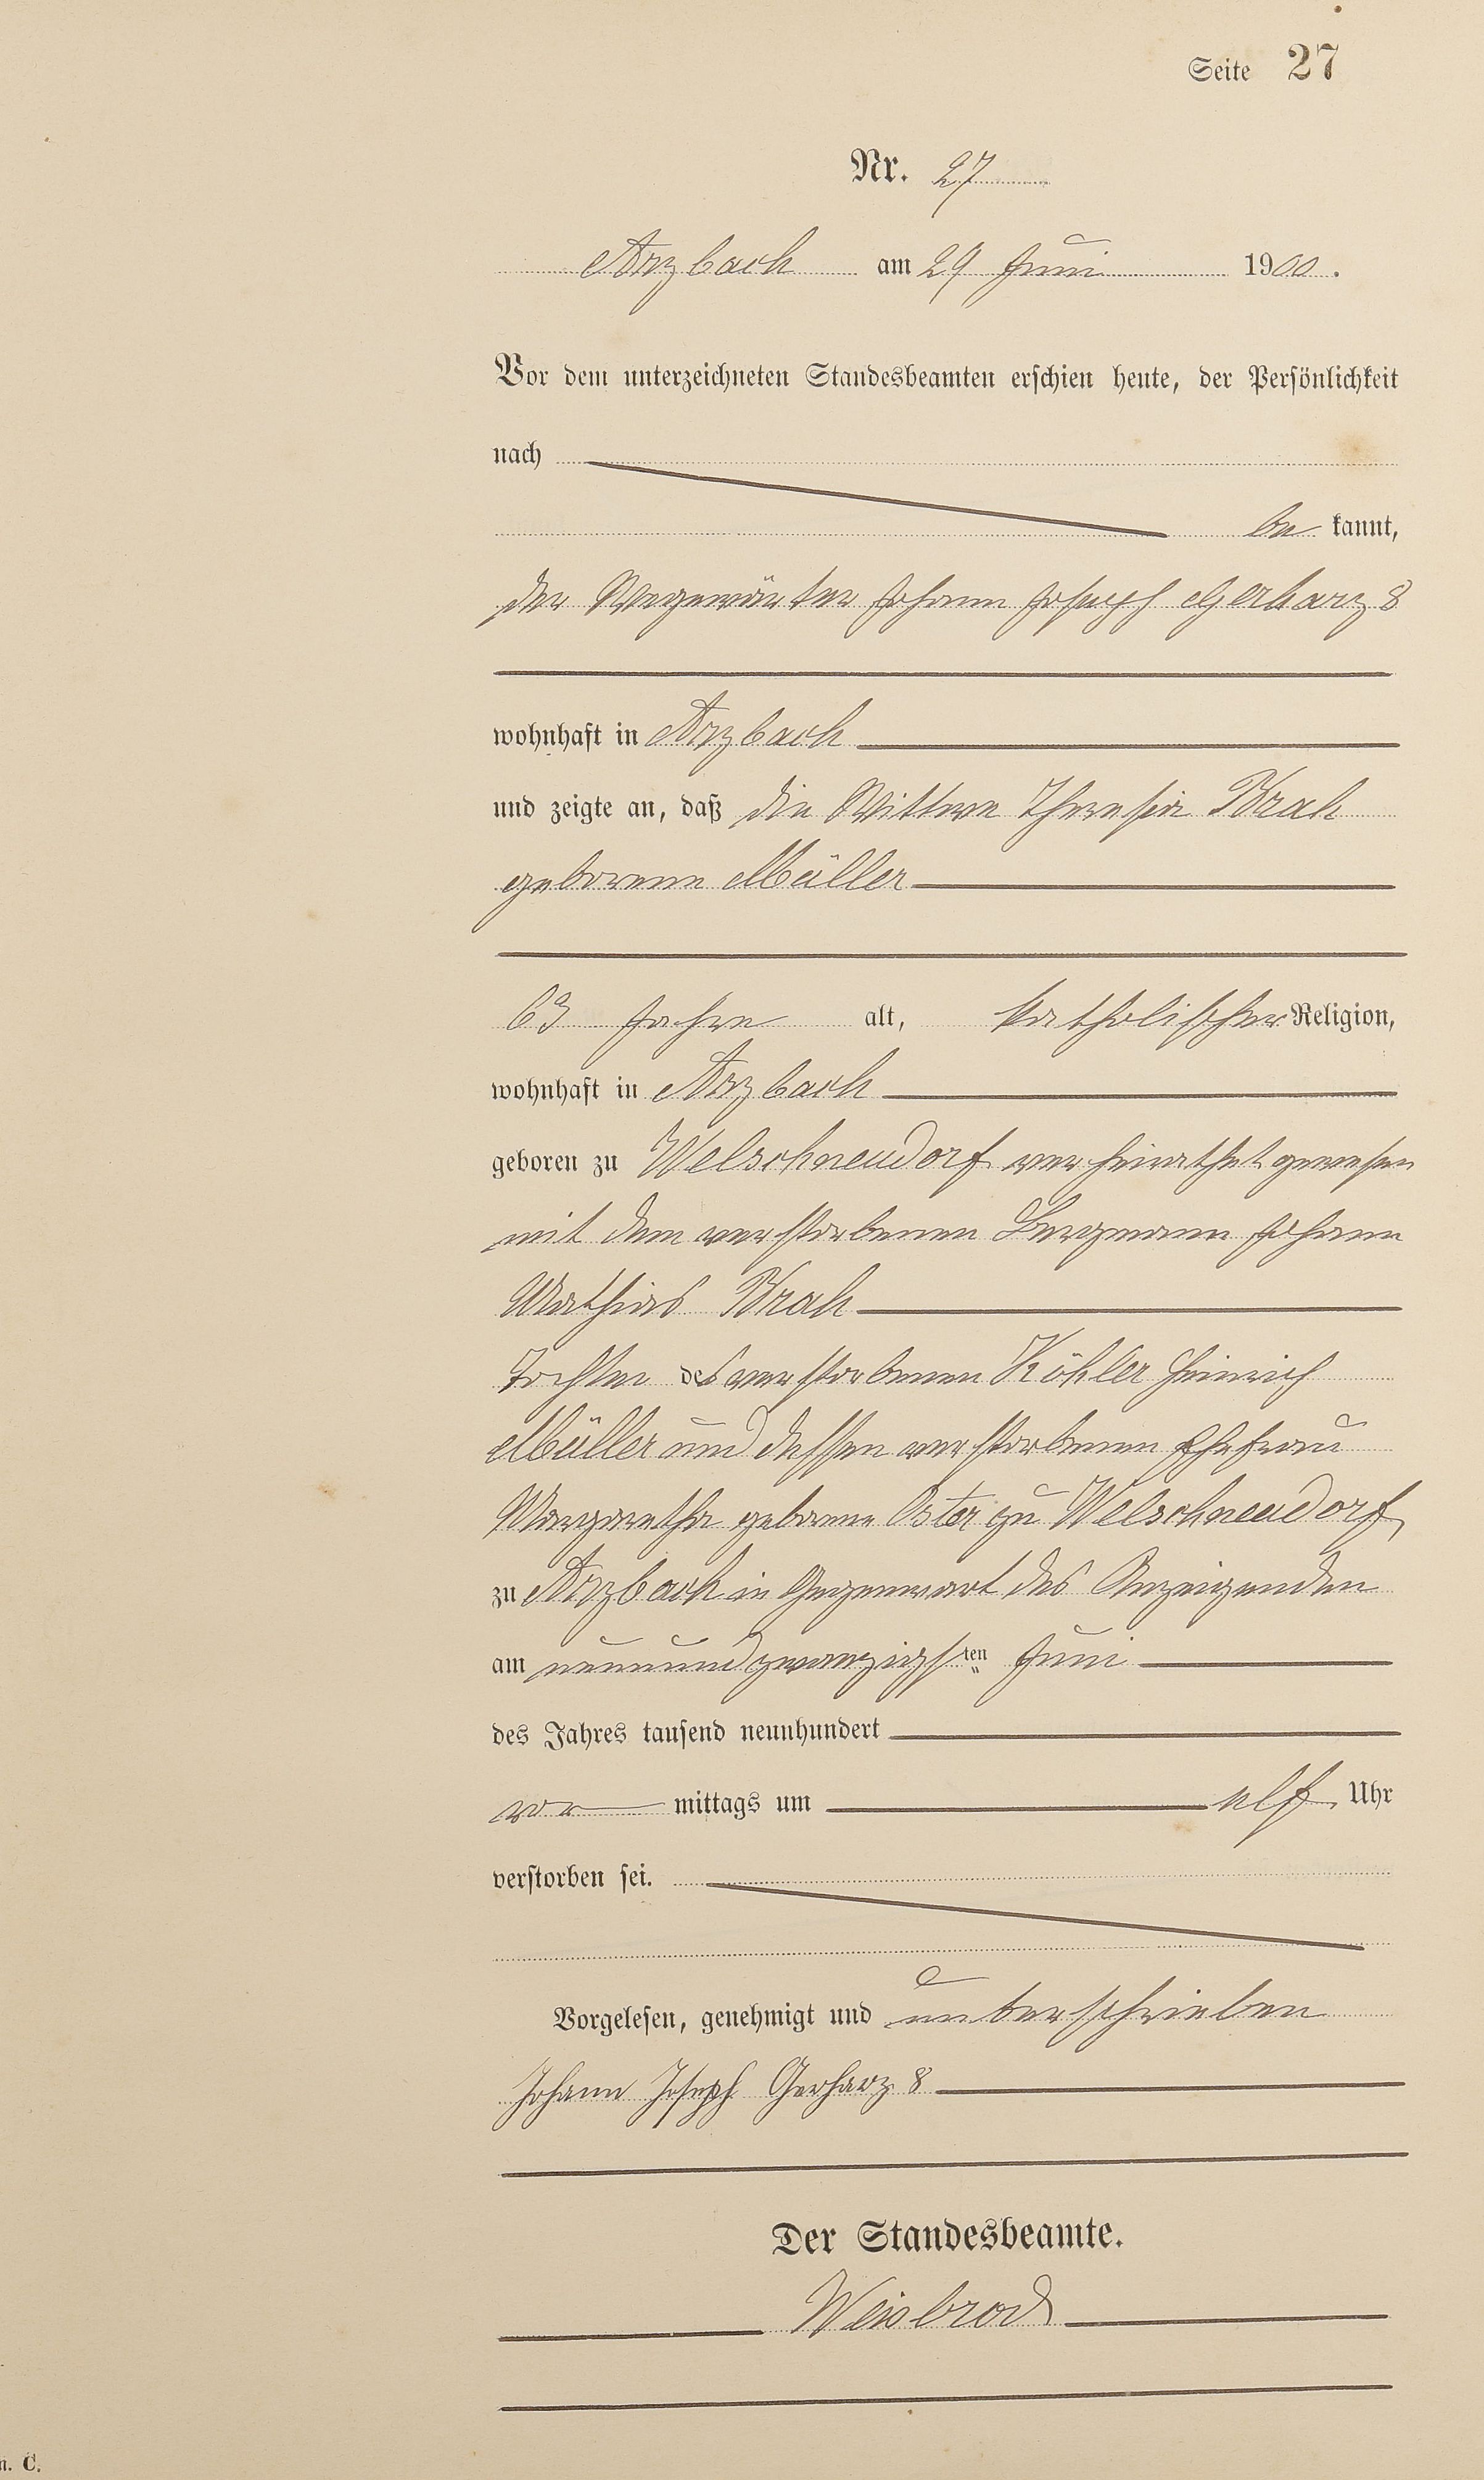 Seite 27
Nr. 27
Arzbach am 29 Juni 1900.
Vor dem unterzeichneten Standesbeamten erschien heute, der Persönlichkeit
nach
be kannt,
der Wegewärter Johann Joseph Gerharz 8
wohnhaft in Arzbach
und zeigte an, daß die Wittwe Theresia Brah
geborene Müller
63 Jahre alt, katholischer Religion,
wohnhaft in Arzbach
geboren zu Welschneudorf verheirathet gewesen
mit dem verstorbenen Bergmann Johann
Mathias Brah
Tochter des verstorbenen Köhler Heinrich
Müller und dessen verstorbenen Ehefrau
Margaretha geborene Oster zu Welschneudorf
zu Arzbach in Gegenwart des Anzeigenden
am neunundzwanzigsten Juni
des Jahres tausend neunhundert
vor mittags um elf Uhr
verstorben sei.
Vorgelesen, genehmigt und unterschrieben
Johann Joseph Gerharz 8
Der Standesbeamte.
Weisbrod
n. C.